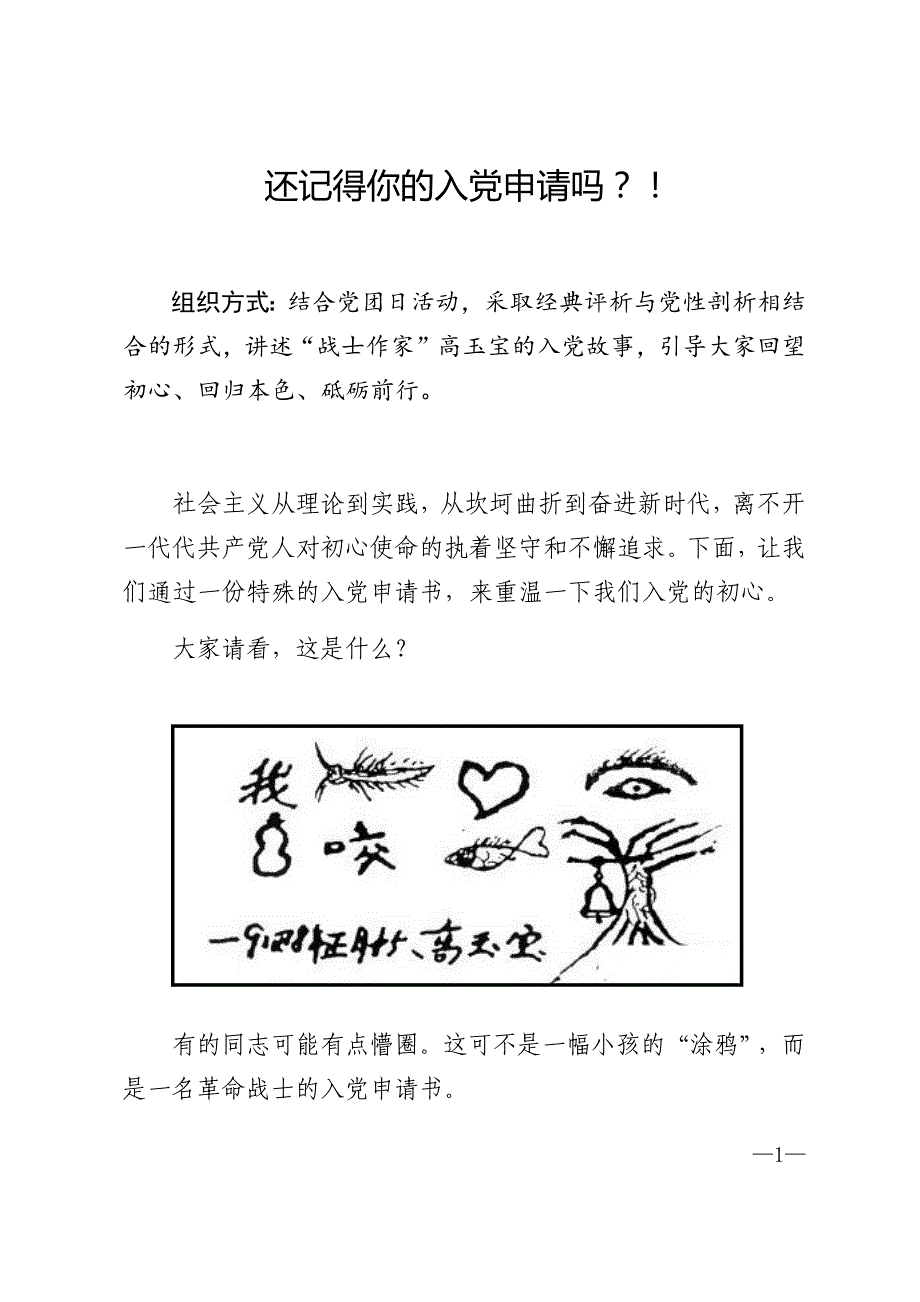 还记得你的入党申请吗？！
组织方式：结合党团日活动，采取经典评析与党性剖析相结
合的形式，讲述“战士作家”高玉宝的入党故事，引导大家回望
初心、回归本色、砥砺前行。
社会主义从理论到实践，从坎坷曲折到奋进新时代，离不开
一代代共产党人对初心使命的执着坚守和不懈追求。下面，让我
们通过一份特殊的入党申请书，来重温一下我们入党的初心。
大家请看，这是什么？
我
咬
高玉宝
有的同志可能有点懵圈。这可不是一幅小孩的“涂鸦”，而
是一名革命战士的入党申请书。
—1—